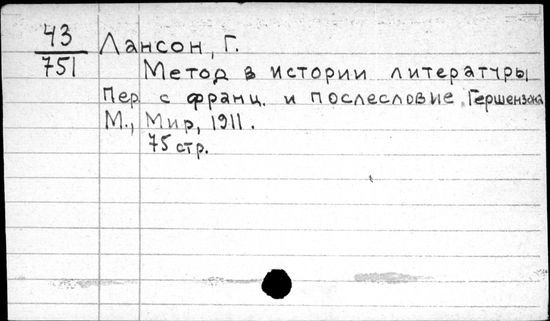 43
751
Лансон, Г.
Метод в истории литературы
Пер с франц. и послесловие Гершензона
М., Мир, 1911.
75 стр.